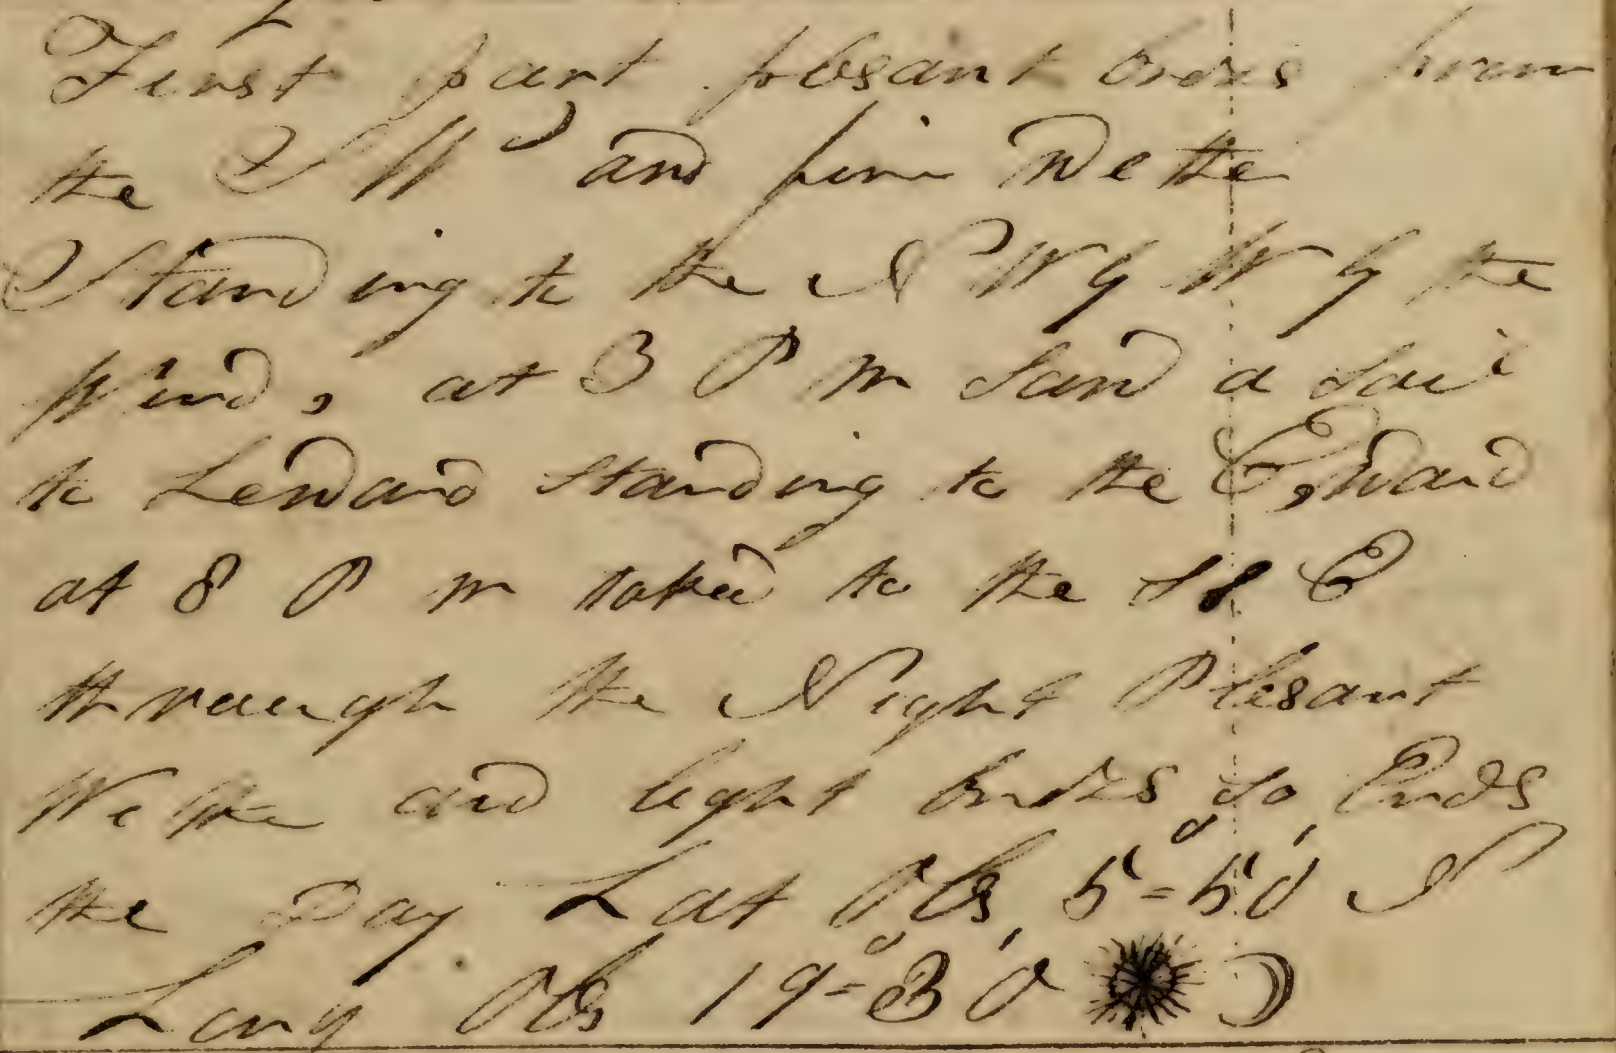 First part plesant breis from
the S W and fine Wethe
Standing to the N W by W by the
Wind, at 3 P m Sand a Sail
to Leward Standing to the Eastward
at 8 P m taked to the S E
through the Night Plesant
Wethe and light breses So Ends
the Day Lat Obs 5°=50' N
Long Obs 19°=30'